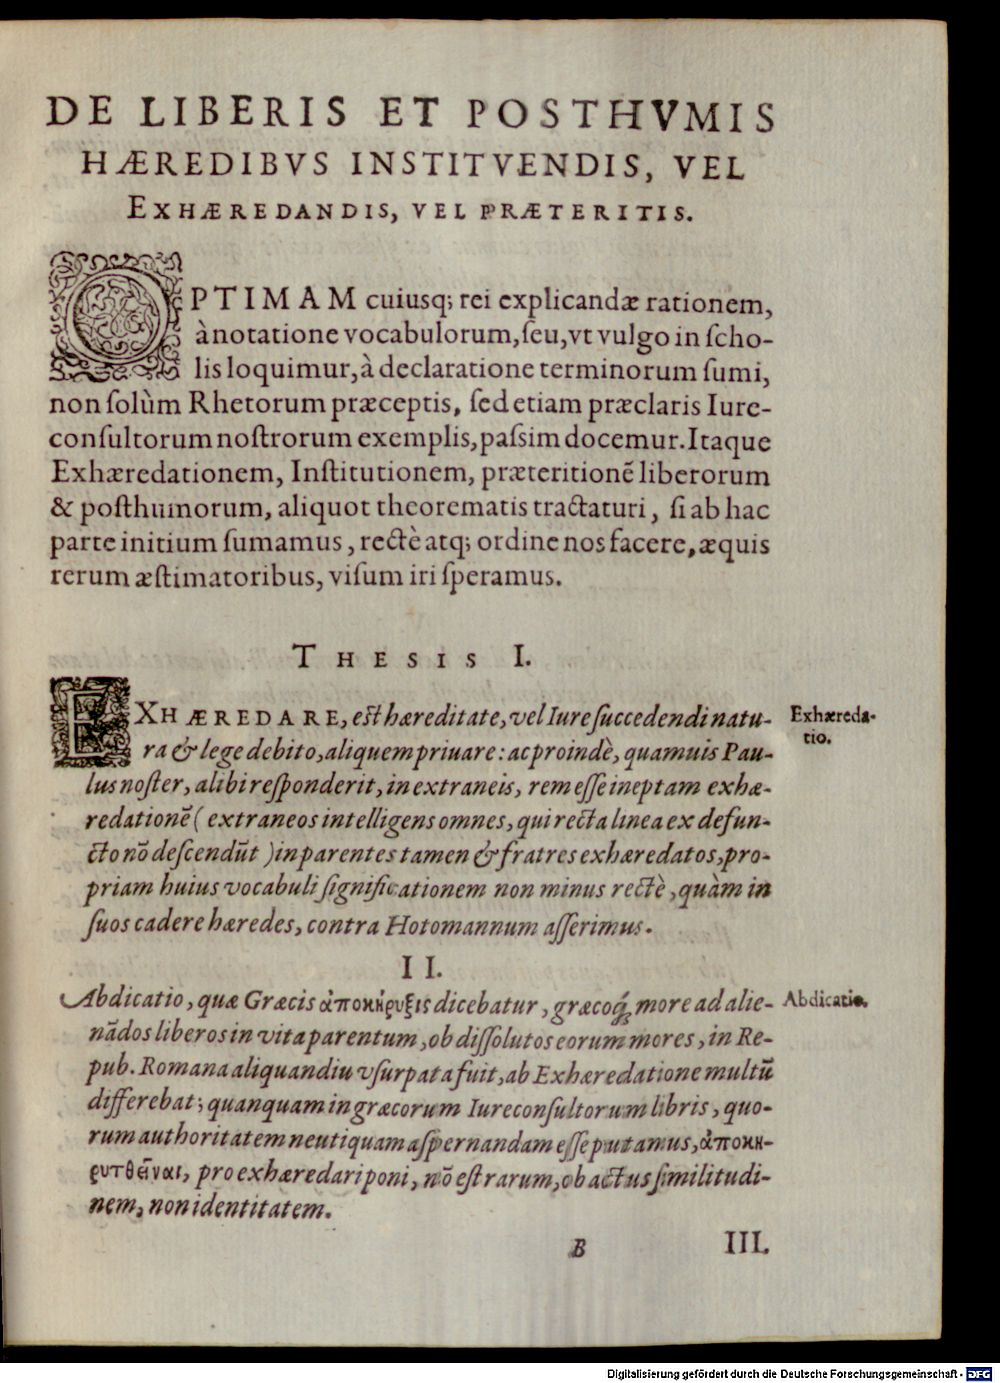 DE LIBERIS ET POSTHVMIS
HÆREDIBVS INSTITVENDIS, VEL
EXHÆREDANDIS, VEL PRÆTERITIS.
OPTIMAM cuiusq; rei explicandæ rationem,
à notatione vocabulorum, ſeu, vt vulgo in ſcho-
lis loquimur, à declaratione terminorum ſumi,
non ſolùm Rhetorum præceptis, ſed etiam præclaris Iure-
conſultorum noſtrorum exemplis, paſsim docemur. Itaque
Exhæredationem, Inſtitutionem, præteritionẽ liberorum
& poſthumorum, aliquot theorematis tractaturi, ſi ab hac
parte initium ſumamus, rectè atq; ordine nos facere, æquis
rerum æſtimatoribus, viſum iri ſperamus.
THESIS I.
EXHÆREDARE, eſt hæreditate, vel Iure ſuccedendi natu-
ra & lege debito, aliquem priuare: ac proindè, quamuis Pau-
lus noſter, alibi reſponderit, in extraneis, rem eſſe ineptam exhæ-
redationẽ (extraneos intelligens omnes, qui recta linea ex defun-
cto nõ deſcendũt) in parentes tamen & fratres exhæredatos, pro-
priam huius vocabuli ſignificationem non minus rectè, quàm in
ſuos cadere hæredes, contra Hotomannum aſſerimus.
Exhæreda-
tio.
II.
Abdicatio, quæ Græcis ἀποκήρυξις dicebatur, græcoq́; more ad alie-
nãdos liberos in vita parentum, ob diſſolutos eorum mores, in Re-
pub. Romana aliquandiu vſurpata fuit, ab Exhæredatione multũ
differebat; quanquam in græcorum Iureconſultorum libris, quo-
rum authoritatem neutiquam aſpernandam eſſe putamus, ἀποκη-
ρυτθῆναι, pro exhæredari poni, nõ eſt rarum, ob actus ſimilitudi-
nem, non identitatem.
Abdicatio.
B
III.
Digitalisierung gefördert durch die Deutsche Forschungsgemeinschaft - DFG